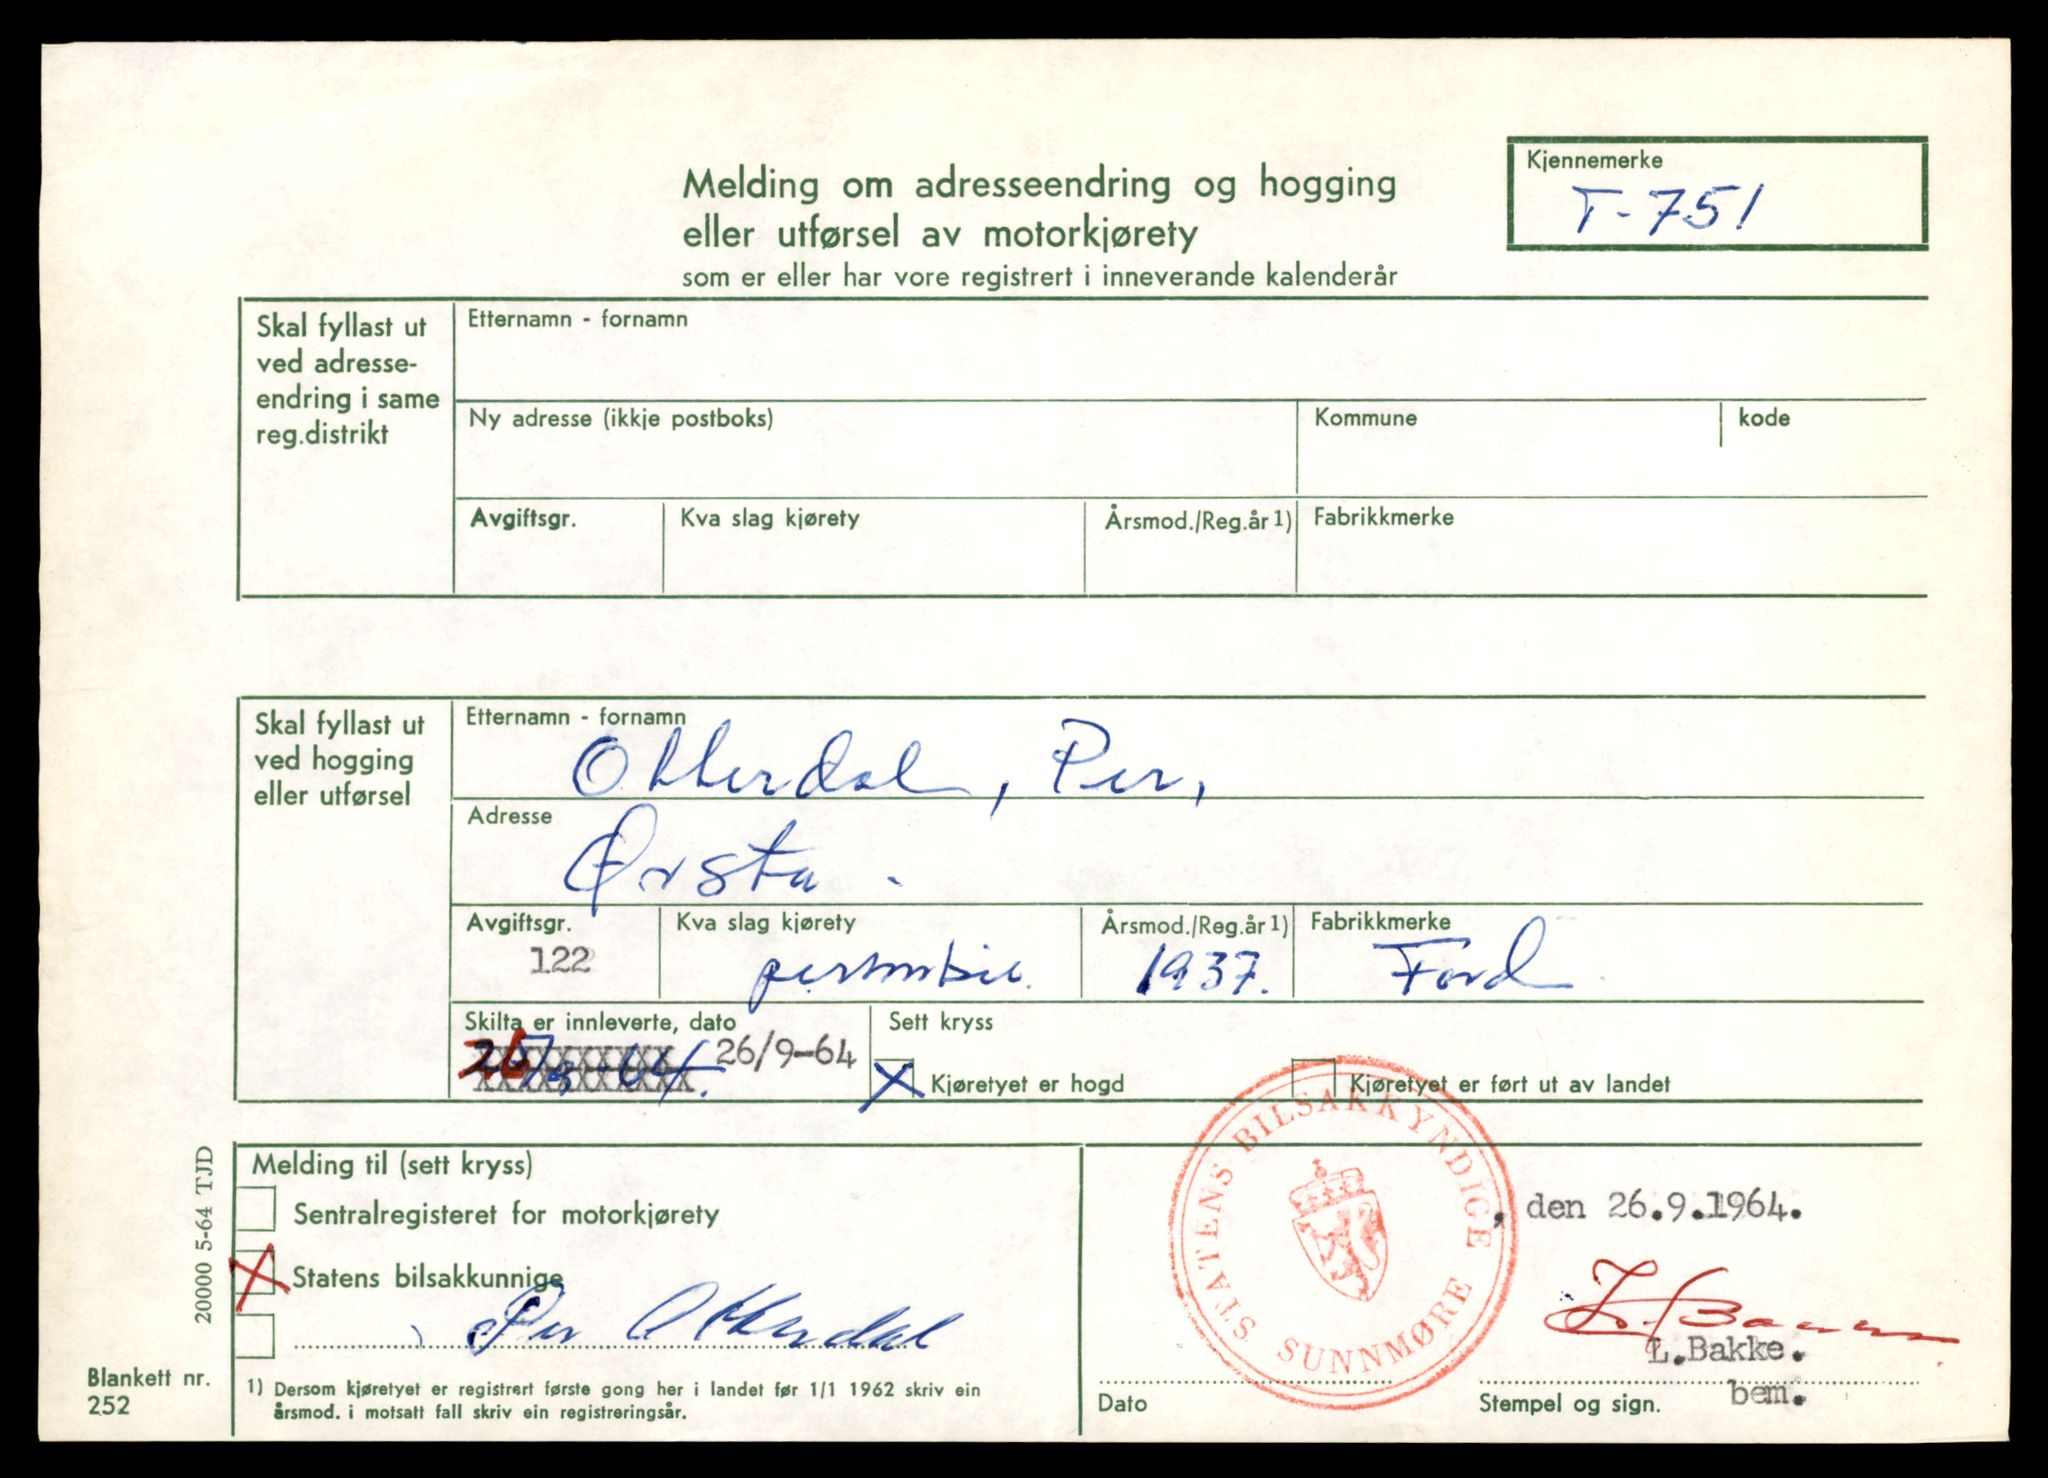 Melding om adresseendring og hogging
eller utførsel av motorkjørety
som er eller har vore registrert i inneverande kalenderår
Kjennemerke
T-751
Skal fyllast ut
ved adresse-
endring i same
reg.distrikt
Etternamn - fornamn
Ny adresse (ikkje postboks)
Kommune
kode
Avgiftsgr.
Kva slag kjørety
Årsmod./Reg.år 1)
Fabrikkmerke
Skal fyllast ut
ved hogging
eller utførsel
Etternamn - fornamn
Otterdal, Per,
Adresse
Ørsta.
Avgiftsgr.
122
Kva slag kjørety
personbil.
Årsmod./Reg.år 1)
1937.
Fabrikkmerke
Ford
Skilta er innleverte, dato
26/9-64
Sett kryss
X Kjøretyet er hogd
Kjøretyet er ført ut av landet
Melding til (sett kryss)
Sentralregisteret for motorkjørety
X Statens bilsakkunnige
Per Otterdal
1) Dersom kjøretyet er registrert første gong her i landet før 1/1 1962 skriv ein
årsmod. i motsatt fall skriv ein registreringsår.
STATENS BILSAKKYNDIGE
SUNNMØRE
, den 26.9.1964.
L.Bakke.
bem.
Dato
Stempel og sign.
20000 5-64 TJD
Blankett nr.
252